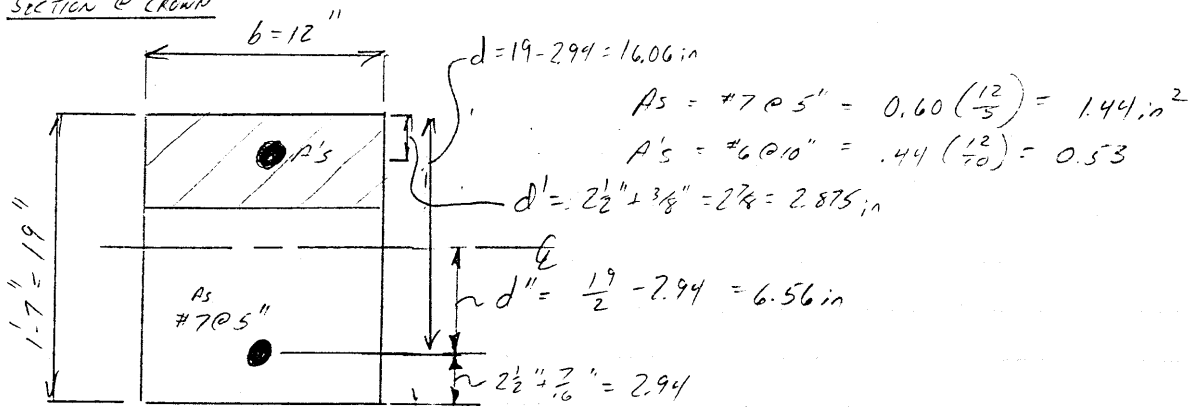 SECTION @ CROWN
b = 12"
d = 19 - 2.94 = 16.06 in
As = #7 @ 5" = 0.60 (12/5) = 1.44 in²
A's = #6 @ 10" = .44 (12/10) = 0.53
A's
d' = 2 1/2" + 3/8" = 2 7/8 = 2.875 in
1'-7" = 19"
℄
d" = 19/2 - 2.94 = 6.56 in
As
#7 @ 5"
2 1/2" + 7/16" = 2.94